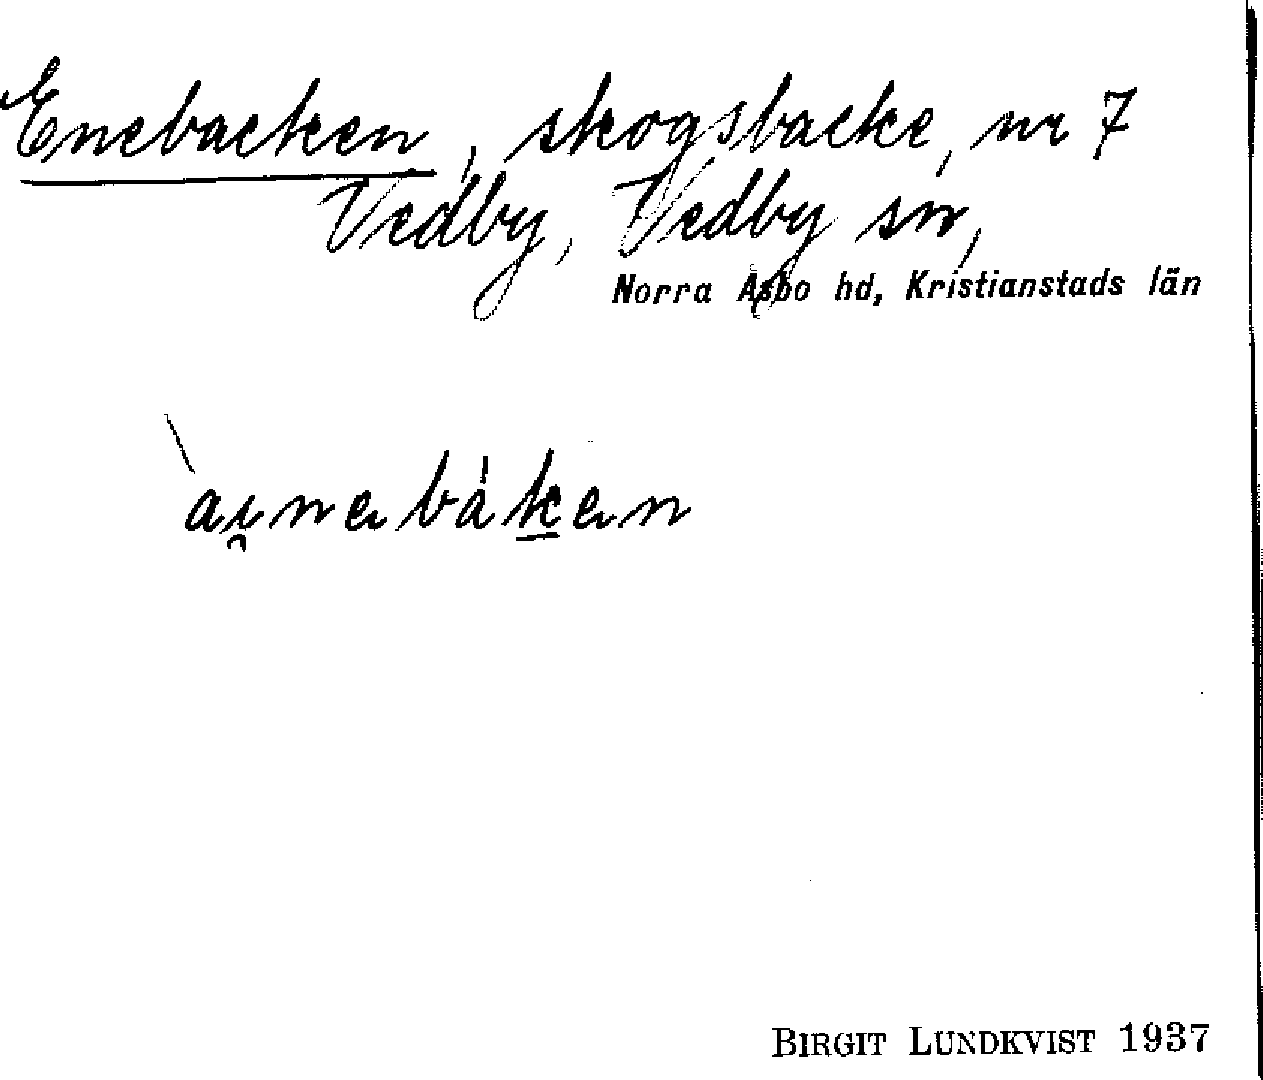 Enebacken, skogsbacke, nr 7
Vedby, Vedby sn,
Norra Åsbo hd, Kristianstads län
`ai̯nəbák̲ən
BIRGIT LUNDKVIST 1937